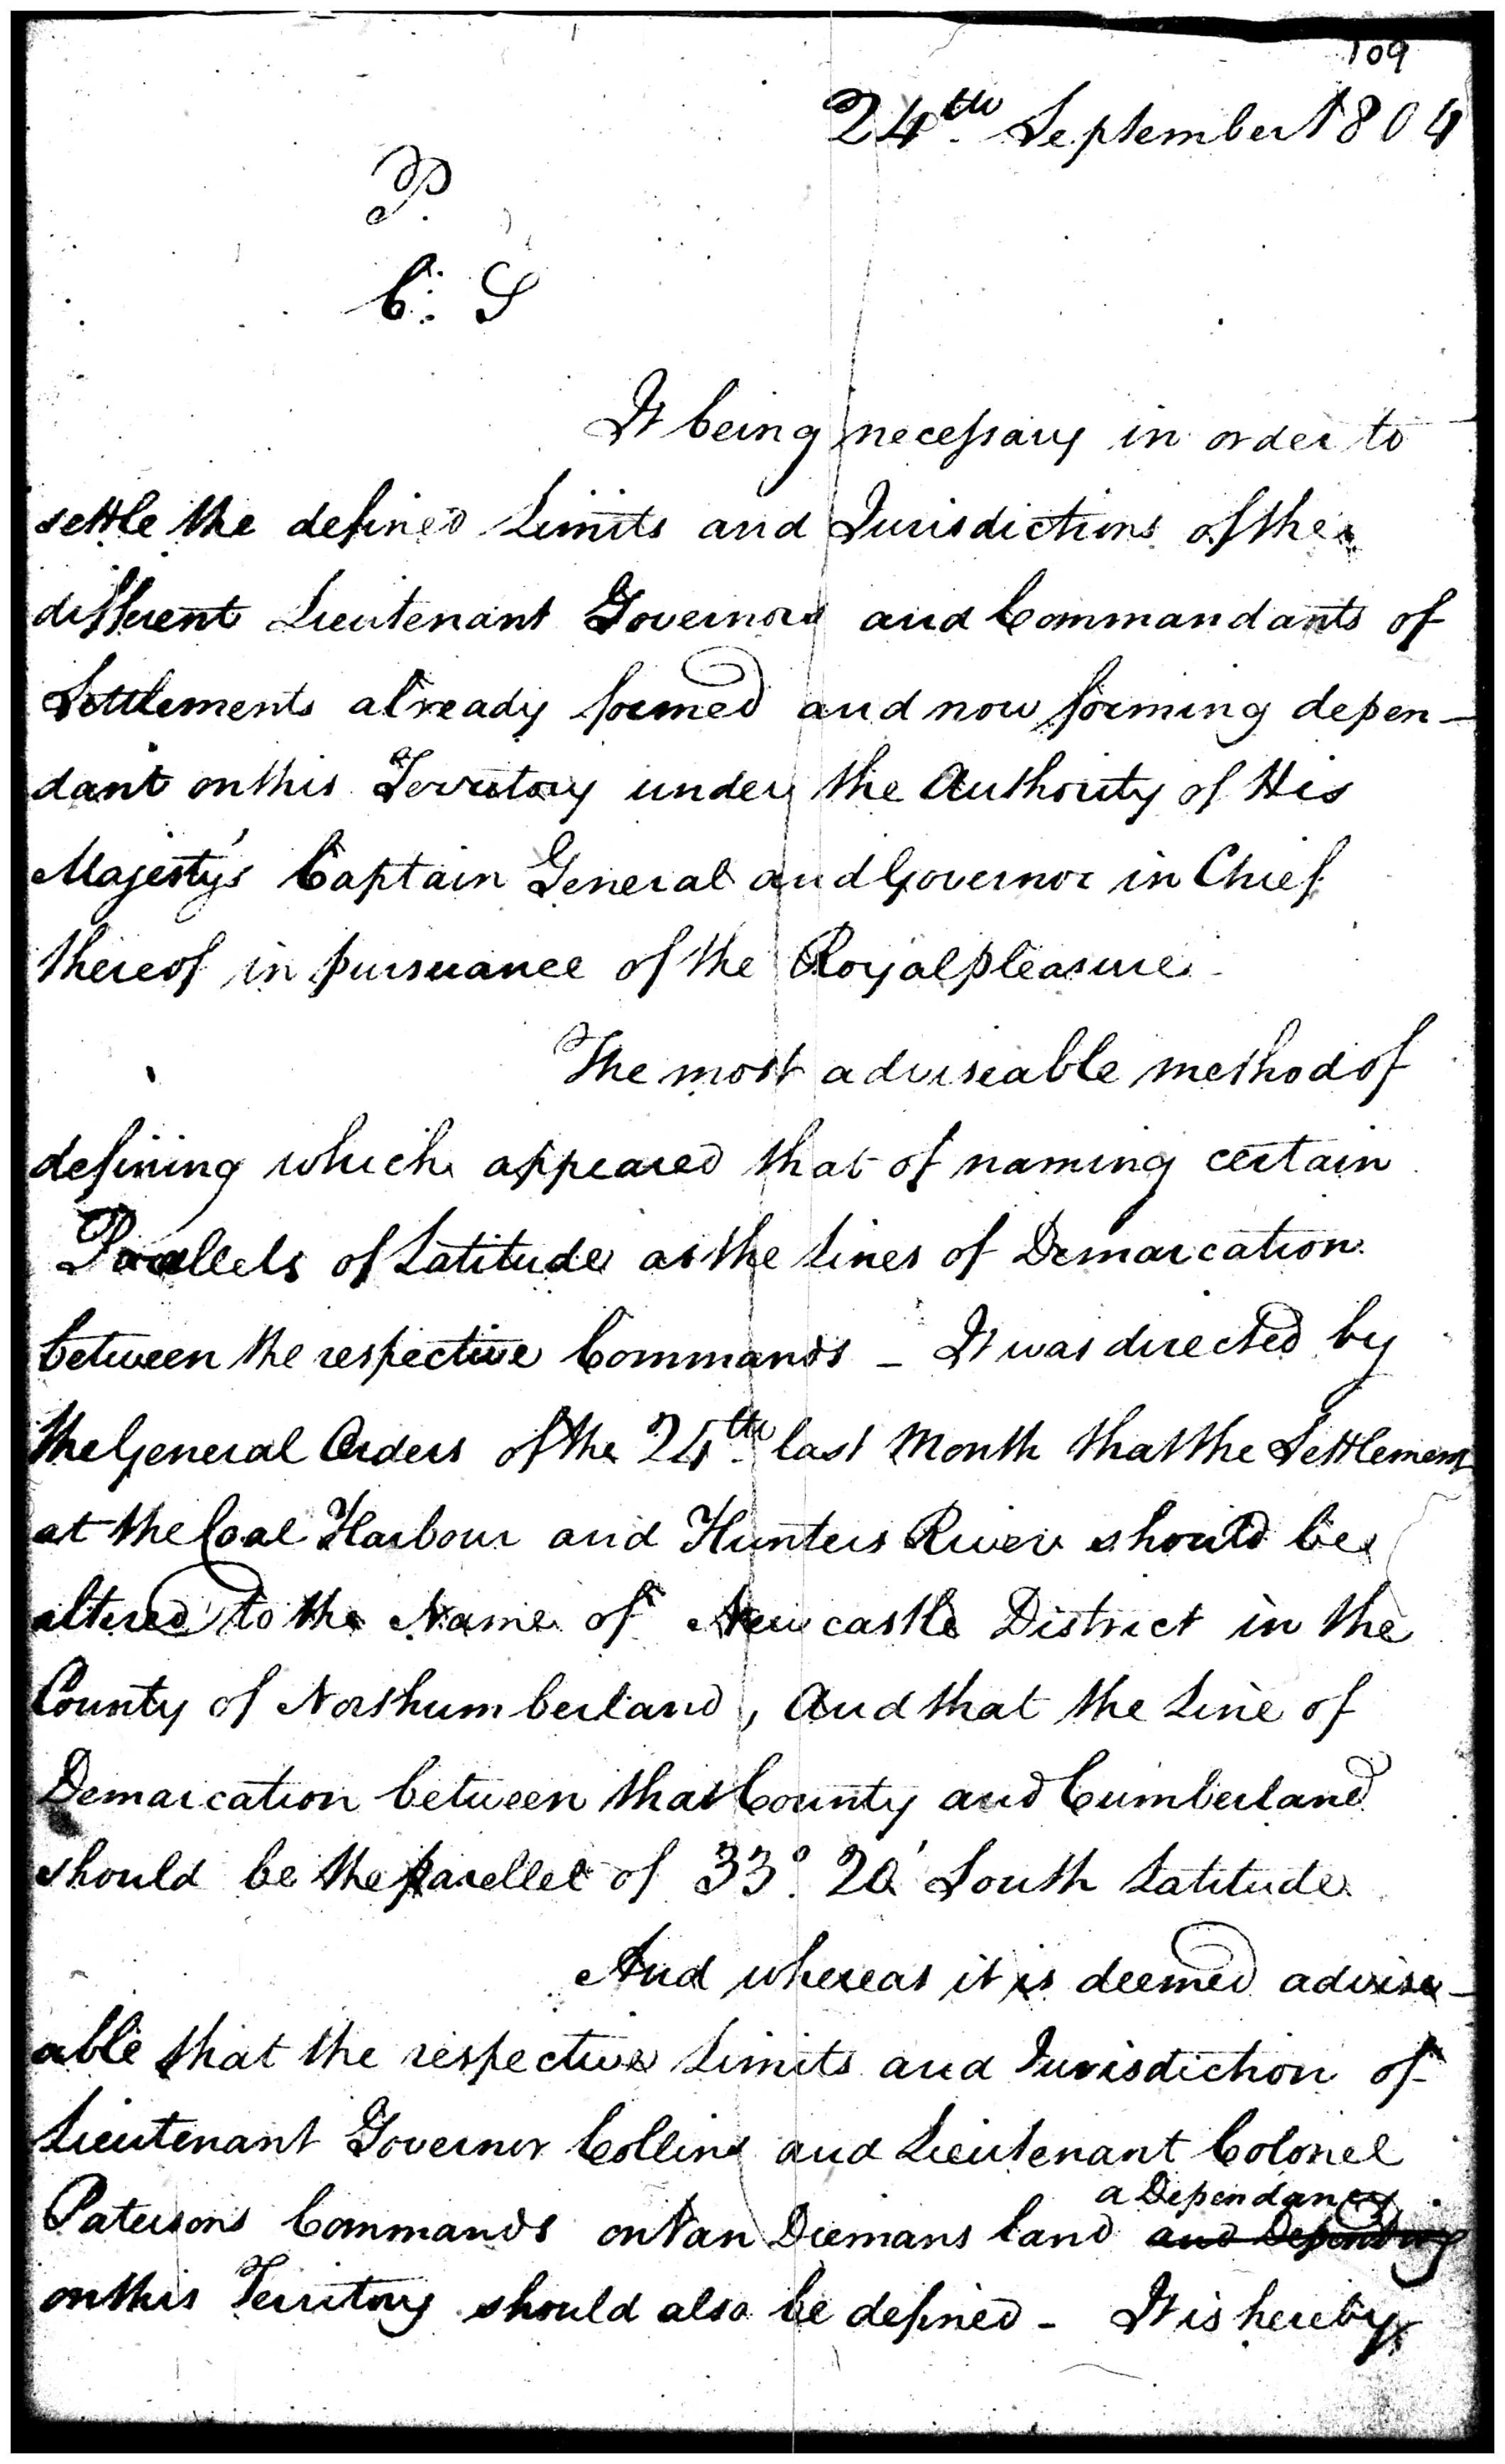 109
24th September 1804
P.
C: S
It being necessary in order to
settle the defined Limits and Jurisdictions of the
different Lieutenant Governors and Commandants of
Settlements already formed and now forming depen-
dant on this Territory under the Authority of His
Majesty's Captain General and Governor in Chief
thereof in pursuance of the Royal pleasure.
The most adviseable method of
defining which appeared that of naming certain
Parallels of Latitude as the Lines of Demarcation
between the respective Commands - It was directed by
the General Orders of the 24th last Month that the Settlement
at the Coal Harbour and Hunters River should be
altered to the Name of Newcastle District in the
County of Northumberland, And that the Line of
Demarcation between that County and Cumberland
should be the parellel of 33° 20' South Latitude.
And whereas it is deemed advise-
able that the respective Limits and Jurisdiction of
Lieutenant Governor Collins and Lieutenant Colonel
a Dependancy
Paterson's Commands on Van Diemans land and Depending
on this Territory should also be defined - It is hereby